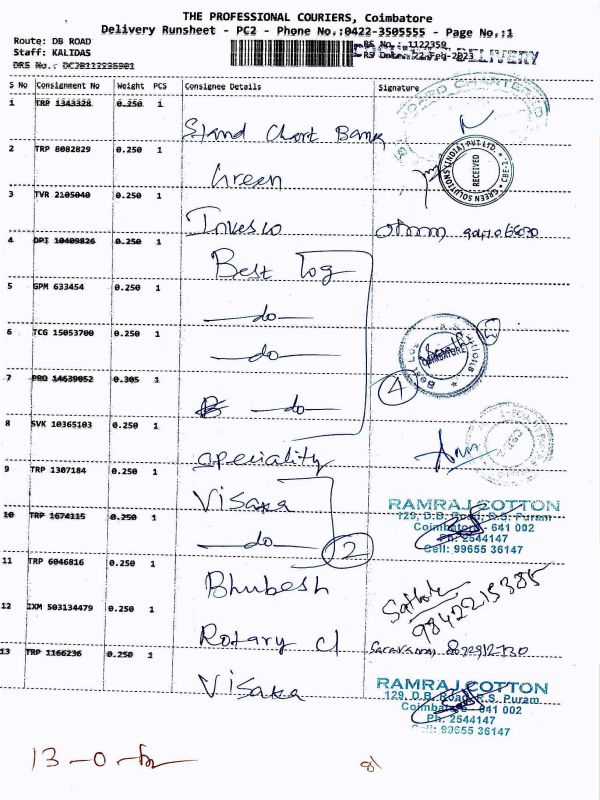 THE PROFESSIONAL COURIERS, Coimbatore
Delivery Runsheet - PC2 - Phone No.:0422-3505555 - Page No.:1
Route: DB ROAD
RS No.: 1122359
DELIVERY
Staff: KALIDAS
RS Date: 22-Feb-2023
DRS No.:
S No Consignment No Weight PCS Consignee Details Signature
1 TRP 1343328 0.250 1
Stand Chart Bank
2 TRP 8082829 0.250 1
Green
GREEN SOLUTIONS (INDIA) PVT.LTD.
RECEIVED
3 TVR 2105040 0.250 1
Invesco
4 DPI 10409826 0.250 1
Best log
5 GPM 633454 0.250 1
do
6 TCG 15053700 0.250 1
do
COIMBATORE
4
7 PRO 14639052 0.305 1
do
8 SVK 10365103 0.250 1
speciality
9 TRP 1307184 0.250 1
Visaka
RAMRAJ COTTON
129, D.B. Road, R.S. Puram
Coimbatore - 641 002
Ph: 2544147
Cell: 99655 36147
10 TRP 1674115 0.250 1
do
2
11 TRP 6046816 0.250 1
Bhubesh
12 IXM 503134479 0.250 1
Rotary cl
13 TRP 1166236 0.250 1
Visaka
RAMRAJ COTTON
129, D.B. Road, R.S. Puram
Coimbatore - 641 002
Ph: 2544147
Cell: 99655 36147
13 - 0 -